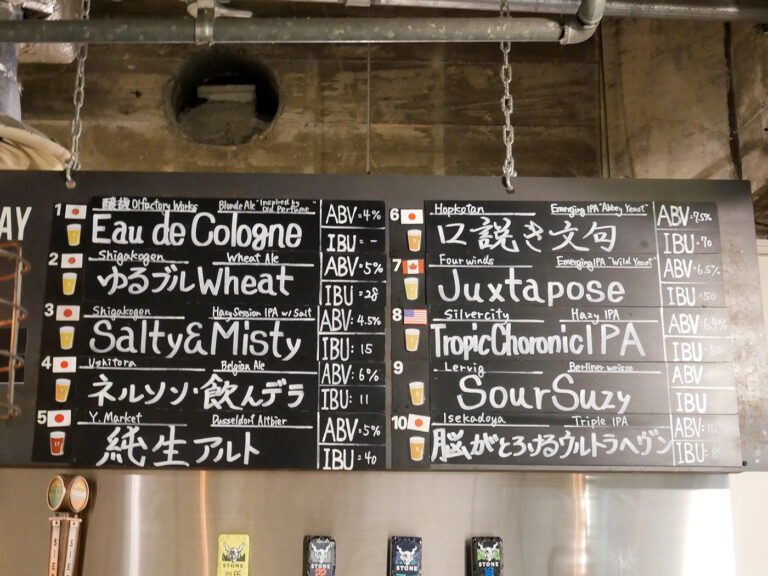 AY
1 醸燻 Olfactory Works Blonde Ale "Inspired by Old Perfume"
Eau de Cologne
ABV=4%
IBU=-
2 Shigakogen Wheat Ale
ゆるブルWheat
ABV=5%
IBU=28
3 Shigakogen Hazy Session IPA w/ Salt
Salty&Misty
ABV:4.5%
IBU:15
4 Ushitora Belgian Ale
ネルソン・飲んデラ
ABV:6%
IBU:11
5 Y. Market Dusseldorf Altbier
純生アルト
ABV=5%
IBU:40
6 Hopkotan Emerging IPA "Abbey Yeast"
口説き文句
ABV=7.5%
IBU.70
7 Four winds Emerging IPA "Wild Yeast"
Juxtapose
ABV·6.5%
IBU·50
8 Silvercity Hazy IPA
TropicChoronicIPA
ABV·6.4%
IBU
9 Lervig Berliner weisse
SourSuzy
ABV
IBU
10 Isekadoya Triple IPA
脳がとろけるウルトラヘヴン
ABV=10
IBU:
STONE
STONE
22
STONE
STONE